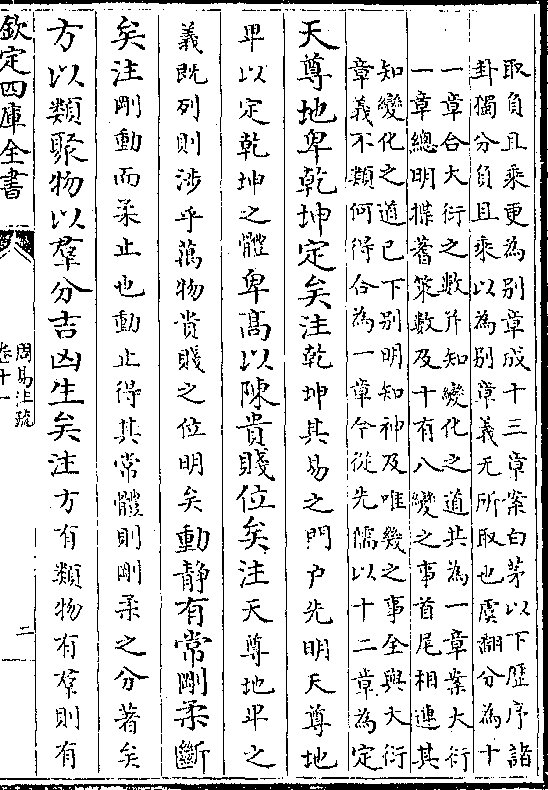 取負且乘更為別章成十三章案白茅以下歷序諸
卦獨分負且乘以為別章義无所取也虞翻分為十
一章合大衍之數并知變化之道共為一章案大衍
一章總明揲蓍策數及十有八變之事首尾相連其
知變化之道已下別明知神及唯幾之事全與大衍
章義不類何得合為一章今從先儒以十二章為定
天尊地卑乾坤定矣注乾坤其易之門户先明天尊地
卑以定乾坤之體卑髙以陳貴賤位矣注天尊地卑之
義既列則涉乎萬物貴賤之位明矣動静有常剛柔斷
矣注剛動而柔止也動止得其常體則剛柔之分著矣
方以類聚物以羣分吉凶生矣注方有類物有羣則有
欽定四庫全書
周易注疏
卷十一
二